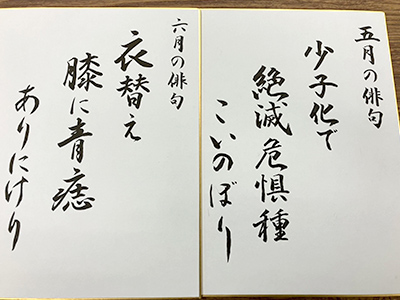 五月の俳句
少子化で
絶滅危惧種
こいのぼり
六月の俳句
衣替え
膝に青痣
ありにけり